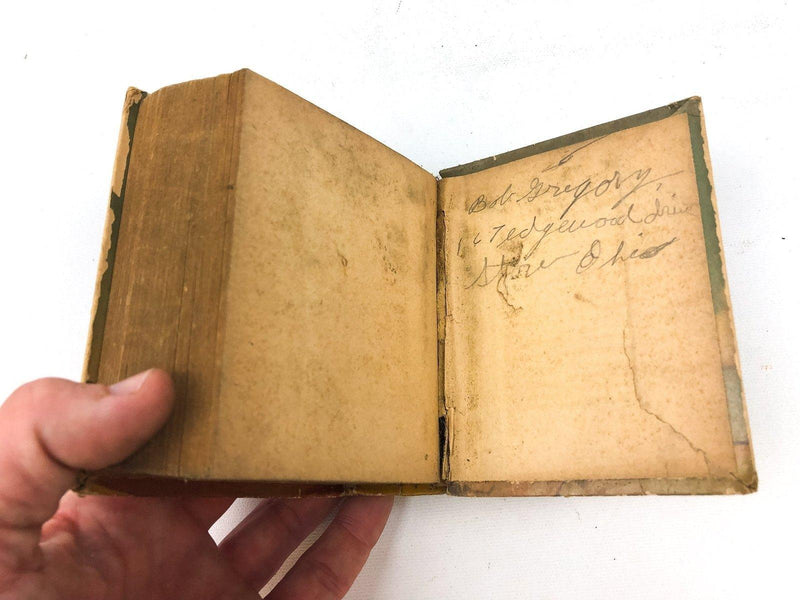 Bob Gregory,
167 edgewood drive
Stow Ohio